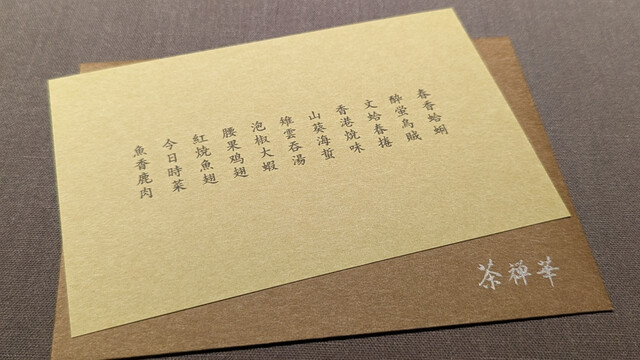 春香蛤蜊
酔蛍烏賊
文蛤春捲
香港焼味
山葵海蜇
雉雲呑湯
泡椒大蝦
腰果鶏翅
紅焼魚翅
今日時菜
魚香鹿肉
茶禅華